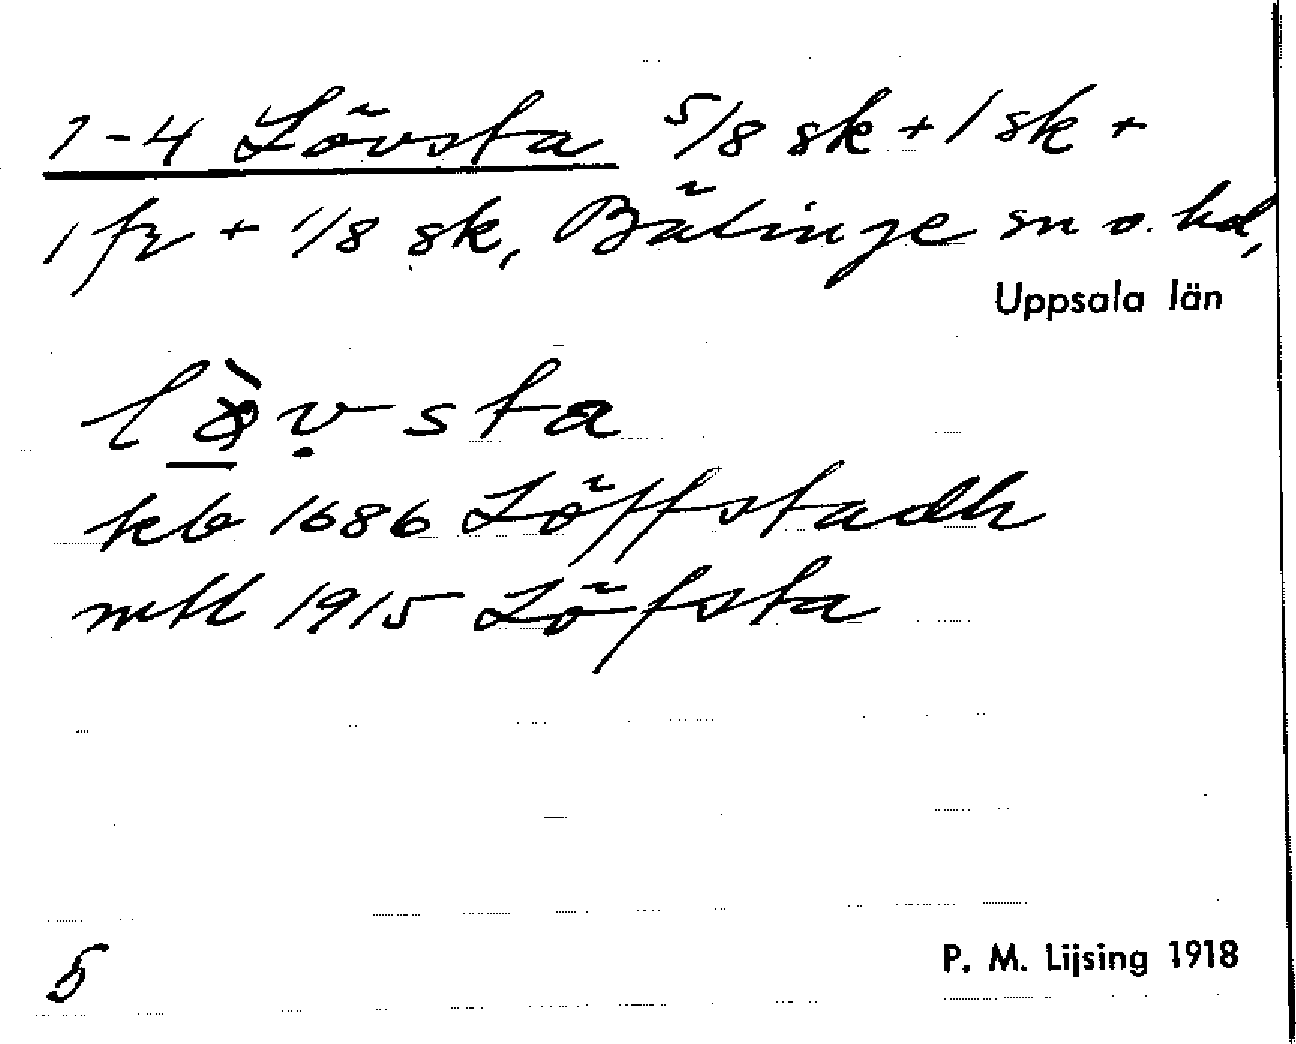 1-4 Lövsta 5/8 sk + 1 sk +
1 fr + 1/8 sk, Bälinge sn o. hd,
Uppsala län
lö̀ṿsta
kb 1686 Löffstadh
mtl 1915 Löfsta
5
P. M. Lijsing 1918